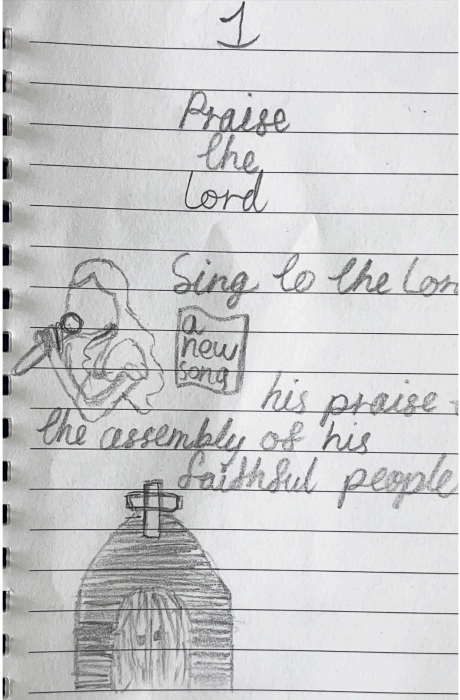 1
Praise
the
Lord
Sing to the Lor
a
new
song
his praise
the assembly of his
faithful people